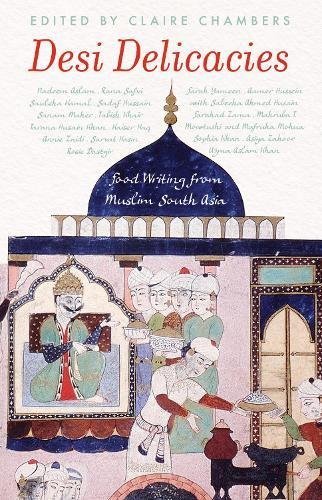 EDITED BY CLAIRE CHAMBERS
Desi Delicacies
Nadeem Aslam . Rana Safvi
Sauleha Kamal . Sadaf Hussain
Sanam Maher . Tabish Khair
Tarana Husain Khan . Kaiser Haq
Annie Zaidi . Sarvat Hasin
Rosie Dastgir
Sarah Yameen . Aamer Hussein
with Sabeeha Ahmed Husain
Farahad Zama . Mahruba T.
Mowtushi and Mafruha Mohua
Sophia Khan . Asiya Zahoor
Uzma Aslam Khan
Food Writing from
Muslim South Asia